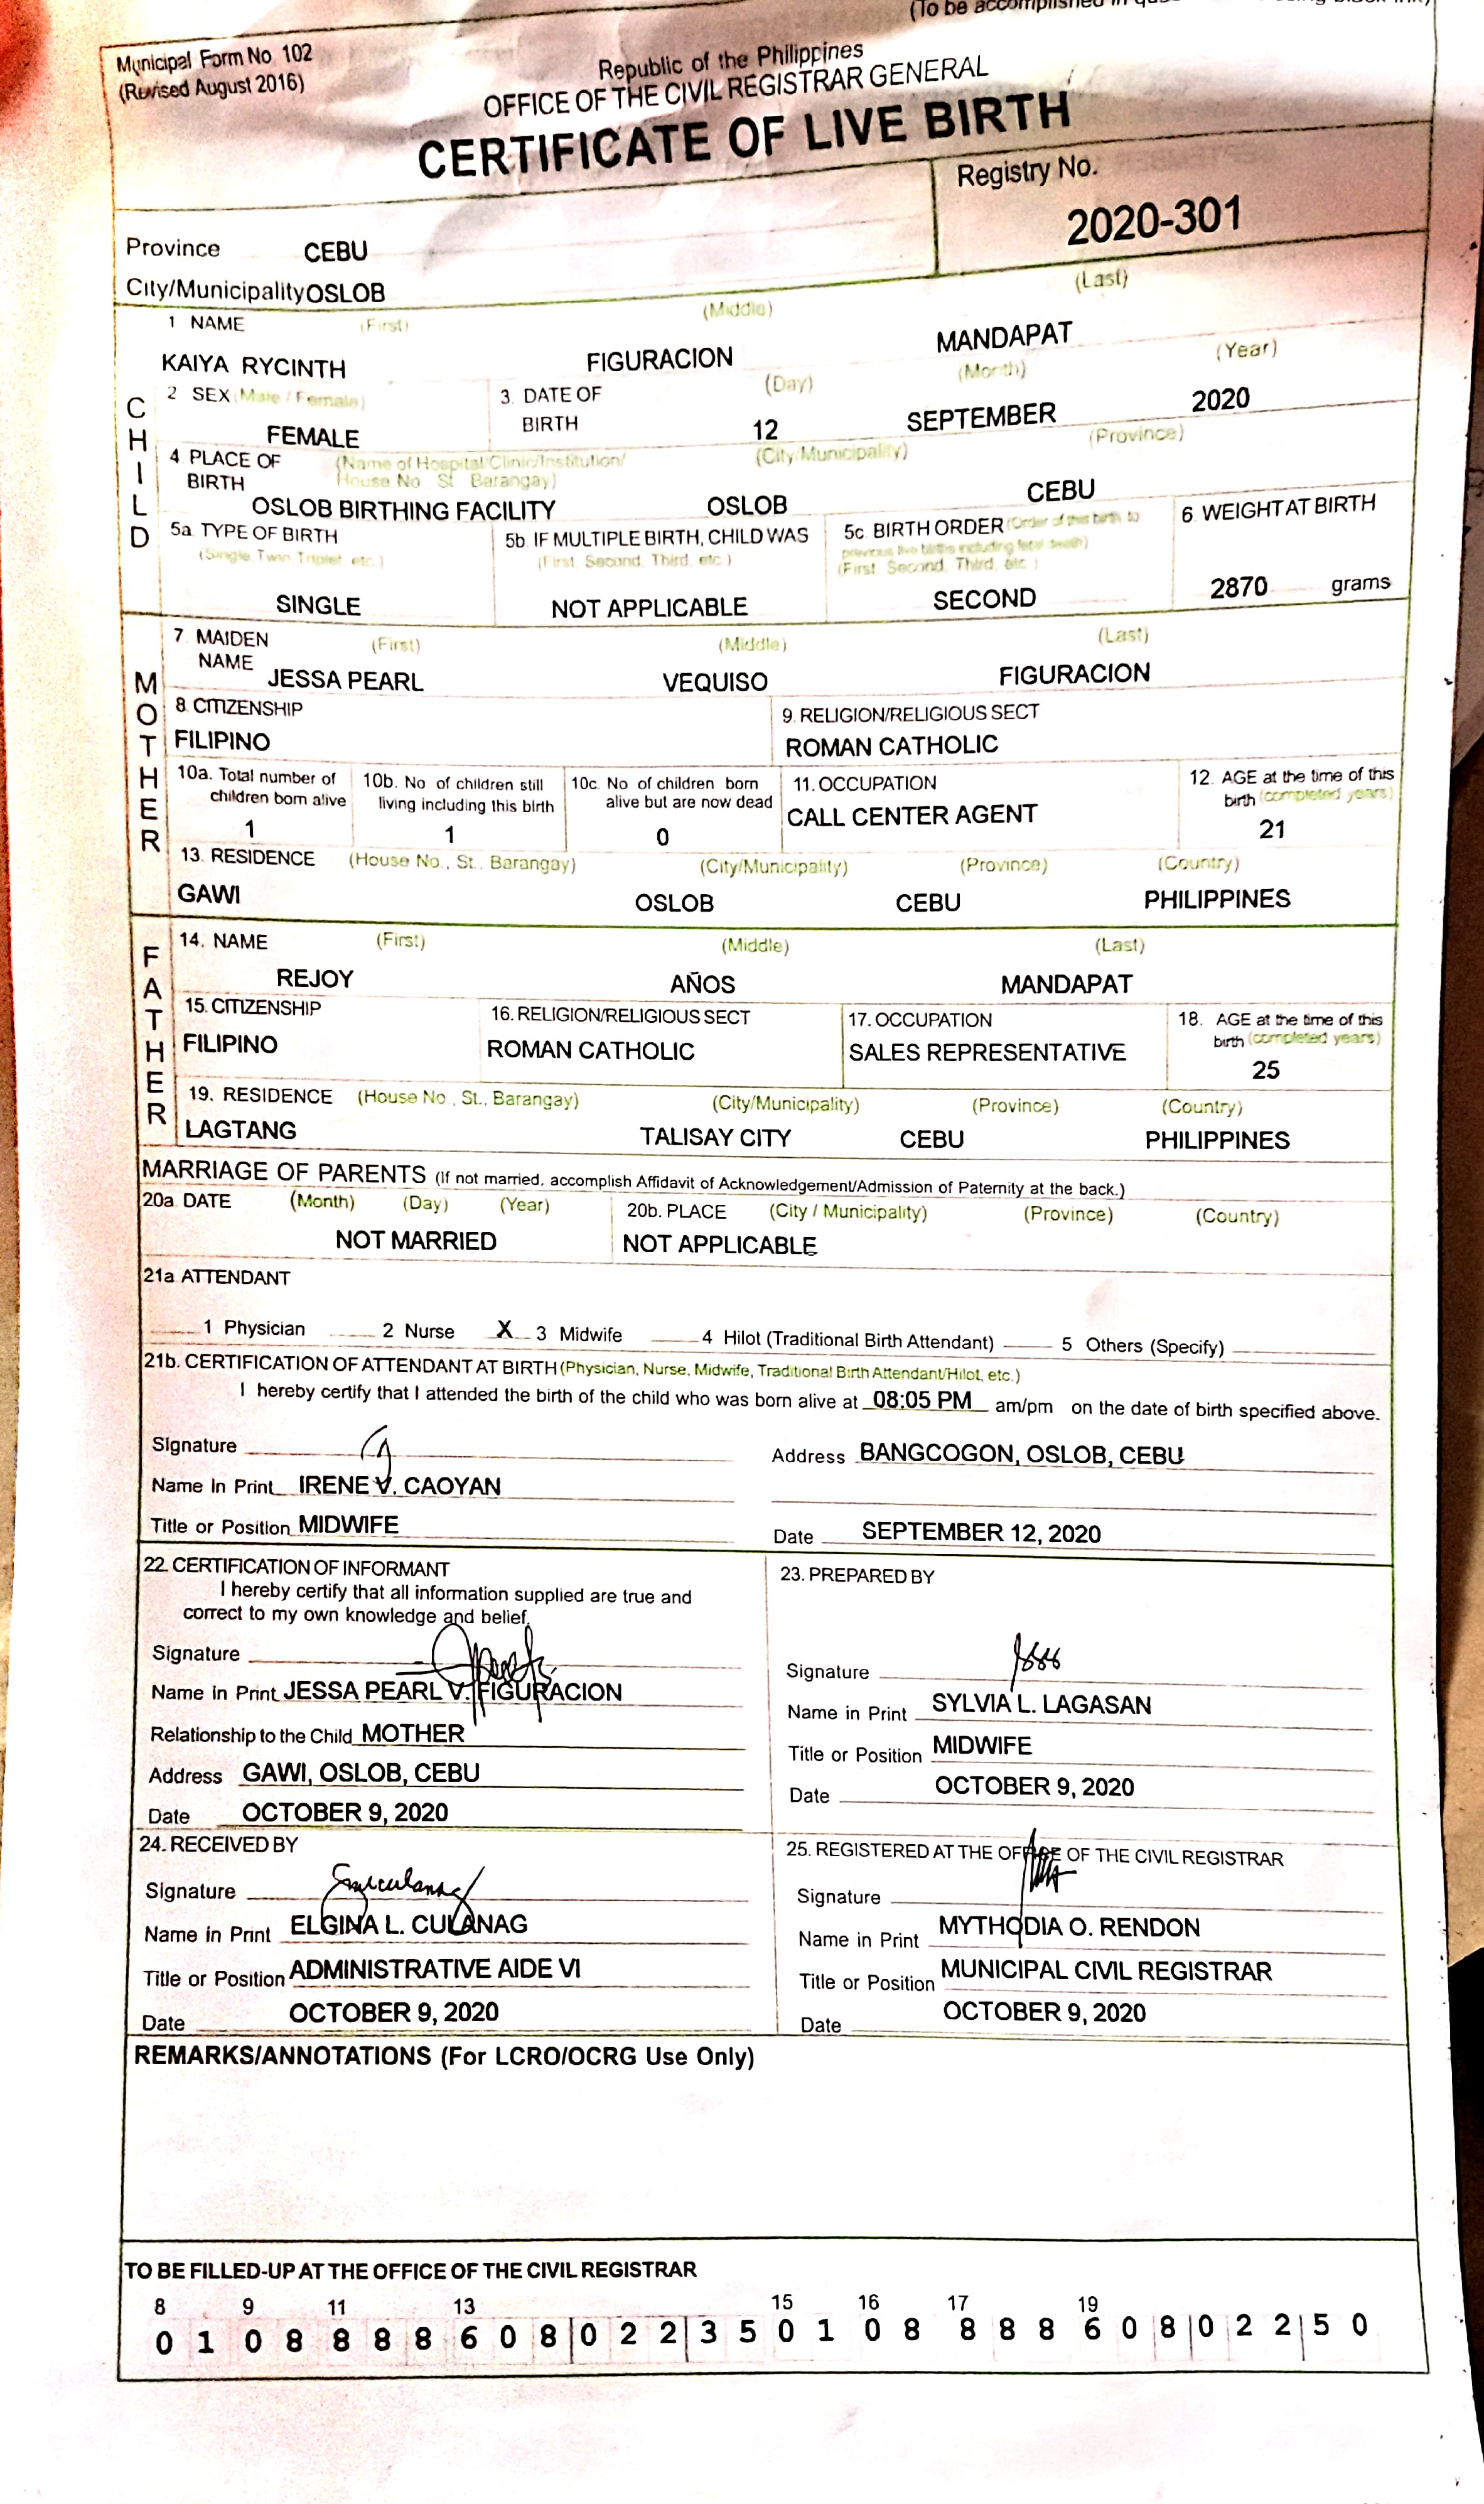 (To be accomplished in
Municipal Form No 102
(Revised August 2016)
Republic of the Philippines
OFFICE OF THE CIVIL REGISTRAR GENERAL
CERTIFICATE OF LIVE BIRTH
Registry No.
2020-301
Province CEBU
City/Municipality OSLOB
CHILD
1 NAME (First) (Middle) (Last)
KAIYA RYCINTH FIGURACION MANDAPAT
2 SEX (Male / Female) 3. DATE OF BIRTH (Day) (Month) (Year)
FEMALE 12 SEPTEMBER 2020
4 PLACE OF BIRTH (Name of Hospital/Clinic/Institution/ House No St Barangay) (City/Municipality) (Province)
OSLOB BIRTHING FACILITY OSLOB CEBU
5a TYPE OF BIRTH (Single Twin Triplet, etc.) 5b. IF MULTIPLE BIRTH, CHILD WAS (First Second, Third, etc.) 5c. BIRTH ORDER (Order of this birth to previous live births including fetal death) (First Second, Third, etc.) 6. WEIGHT AT BIRTH
SINGLE NOT APPLICABLE SECOND 2870 grams
MOTHER
7. MAIDEN NAME (First) (Middle) (Last)
JESSA PEARL VEQUISO FIGURACION
8 CITIZENSHIP 9. RELIGION/RELIGIOUS SECT
FILIPINO ROMAN CATHOLIC
10a. Total number of children born alive 10b. No of children still living including this birth 10c. No of children born alive but are now dead 11. OCCUPATION 12. AGE at the time of this birth (completed years)
1 1 0 CALL CENTER AGENT 21
13. RESIDENCE (House No., St., Barangay) (City/Municipality) (Province) (Country)
GAWI OSLOB CEBU PHILIPPINES
FATHER
14. NAME (First) (Middle) (Last)
REJOY AÑOS MANDAPAT
15. CITIZENSHIP 16. RELIGION/RELIGIOUS SECT 17. OCCUPATION 18. AGE at the time of this birth (completed years)
FILIPINO ROMAN CATHOLIC SALES REPRESENTATIVE 25
19. RESIDENCE (House No., St., Barangay) (City/Municipality) (Province) (Country)
LAGTANG TALISAY CITY CEBU PHILIPPINES
MARRIAGE OF PARENTS (If not married, accomplish Affidavit of Acknowledgement/Admission of Paternity at the back.)
20a DATE (Month) (Day) (Year) 20b. PLACE (City / Municipality) (Province) (Country)
NOT MARRIED NOT APPLICABLE
21a ATTENDANT
1 Physician 2 Nurse X 3 Midwife 4 Hilot (Traditional Birth Attendant) 5 Others (Specify)
21b. CERTIFICATION OF ATTENDANT AT BIRTH (Physician, Nurse, Midwife, Traditional Birth Attendant/Hilot, etc.)
I hereby certify that I attended the birth of the child who was born alive at 08:05 PM am/pm on the date of birth specified above.
Signature Address BANGCOGON, OSLOB, CEBU
Name In Print IRENE V. CAOYAN
Title or Position MIDWIFE Date SEPTEMBER 12, 2020
22. CERTIFICATION OF INFORMANT
I hereby certify that all information supplied are true and
correct to my own knowledge and belief.
Signature
Name in Print JESSA PEARL V. FIGURACION
Relationship to the Child MOTHER
Address GAWI, OSLOB, CEBU
Date OCTOBER 9, 2020
23. PREPARED BY
Signature
Name in Print SYLVIA L. LAGASAN
Title or Position MIDWIFE
Date OCTOBER 9, 2020
24. RECEIVED BY
Signature
Name in Print ELGINA L. CULANAG
Title or Position ADMINISTRATIVE AIDE VI
Date OCTOBER 9, 2020
25. REGISTERED AT THE OFFICE OF THE CIVIL REGISTRAR
Signature
Name in Print MYTHODIA O. RENDON
Title or Position MUNICIPAL CIVIL REGISTRAR
Date OCTOBER 9, 2020
REMARKS/ANNOTATIONS (For LCRO/OCRG Use Only)
TO BE FILLED-UP AT THE OFFICE OF THE CIVIL REGISTRAR
8 9 11 13 15 16 17 19
0 1 0 8 8 8 8 6 0 8 0 2 2 3 5 0 1 0 8 8 8 8 6 0 8 0 2 2 5 0